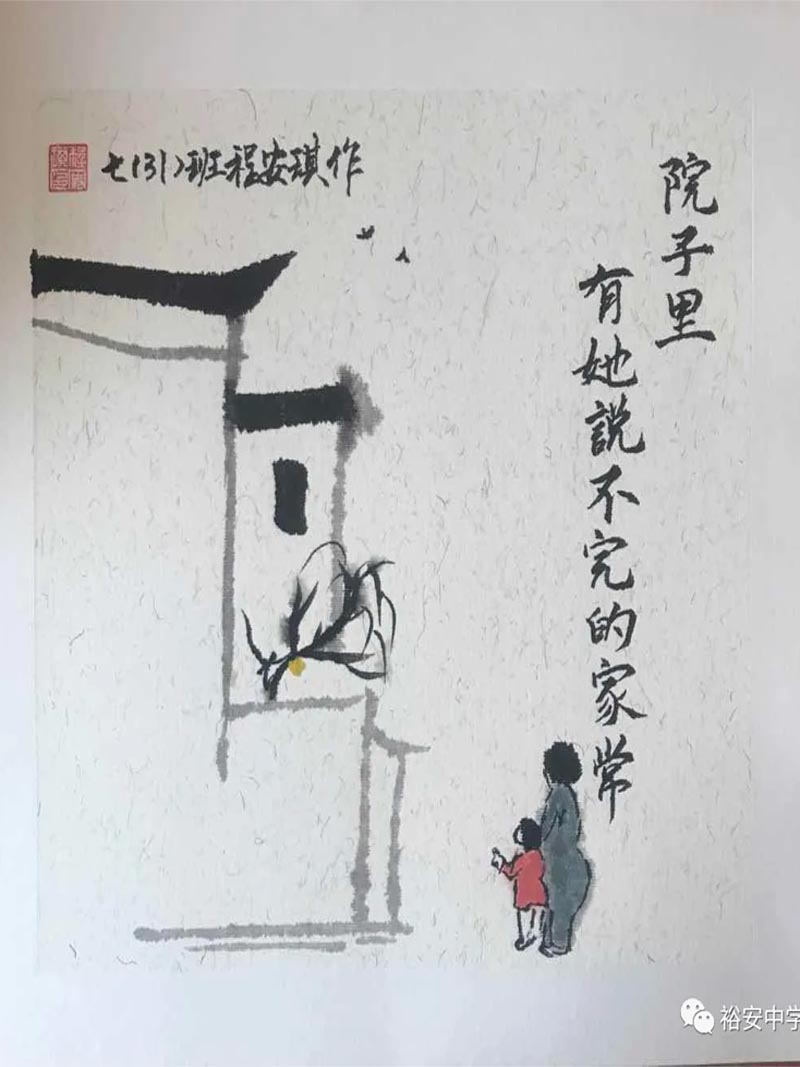 院子里
有她説不完的家常
七(31)班程安琪作
裕安中学